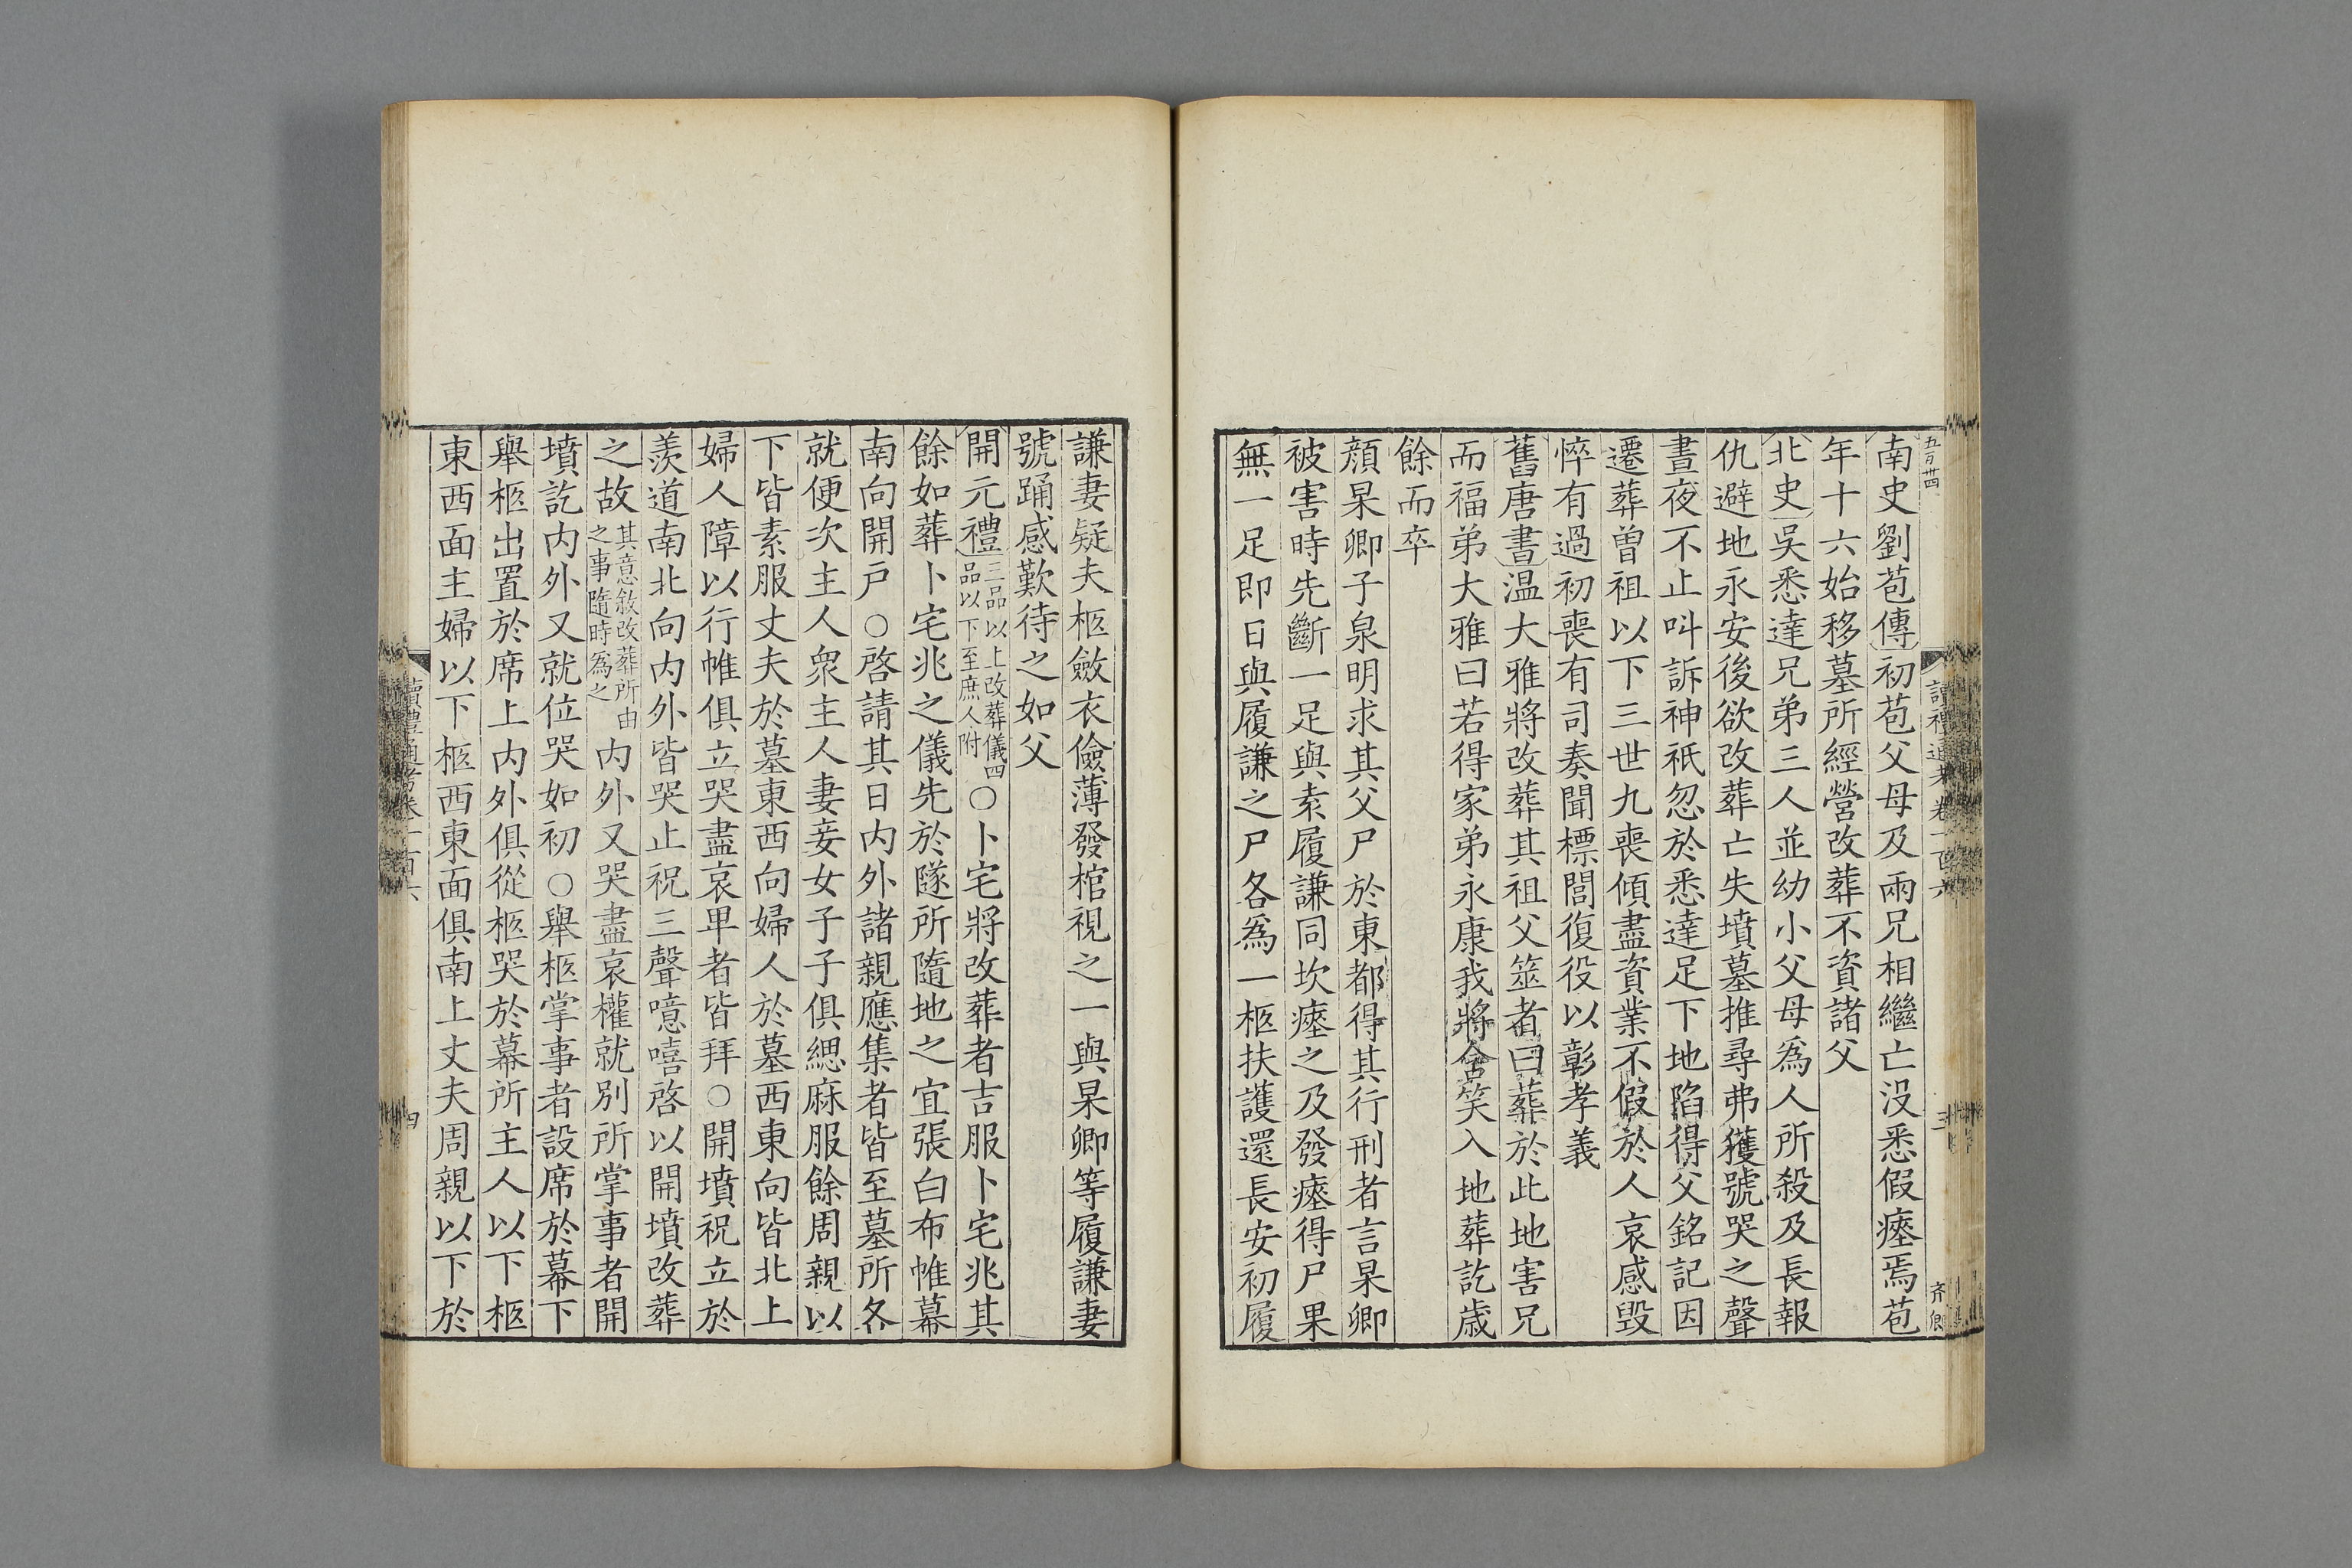 五百卅四
讀禮通考卷一百六
三
齊卿
南史劉苞傳初苞父母及兩兄相繼亡没悉假瘞焉苞
年十六始移墓所經營改葬不資諸父
北史吳悉達兄弟三人並幼小父母爲人所殺及長報
仇避地永安後欲改葬亡失墳墓推尋弗獲號哭之聲
晝夜不止叫訴神祇忽於悉達足下地陷得父銘記因
遷葬曽祖以下三世九喪傾盡資業不假於人哀感毁
悴有過初喪有司奏聞標閭復役以彰孝義
舊唐書温大雅將改葬其祖父筮者曰葬於此地害兄
而福弟大雅曰若得家弟永康我將含笑入地葬訖歲
餘而卒
顔杲卿子泉明求其父尸於東都得其行刑者言杲卿
被害時先斷一足與袁履謙同坎瘞之及發瘞得尸果
無一足即日與履謙之尸各爲一柩扶護還長安初履
謙妻疑夫柩斂衣儉薄發棺視之一與杲卿等履謙妻
號踊感歎待之如父
開元禮三品以上改葬儀四品以下至庶人附○卜宅將改葬者吉服卜宅兆其
餘如葬卜宅兆之儀先於隧所隨地之宜張白布帷幕
南向開戸○啓請其日内外諸親應集者皆至墓所各
就便次主人衆主人妻妾女子子俱緦麻服餘周親以
下皆素服丈夫於墓東西向婦人於墓西東向皆北上
婦人障以行帷俱立哭盡哀卑者皆拜○開墳祝立於
羨道南北向内外皆哭止祝三聲噫嘻啓以開墳改葬
之故其意敘改葬所由之事隨時爲之内外又哭盡哀權就別所掌事者開
墳訖内外又就位哭如初○舉柩掌事者設席於幕下
舉柩出置於席上内外俱從柩哭於幕所主人以下柩
東西面主婦以下柩西東面俱南上丈夫周親以下於
讀禮通考卷一百六
四